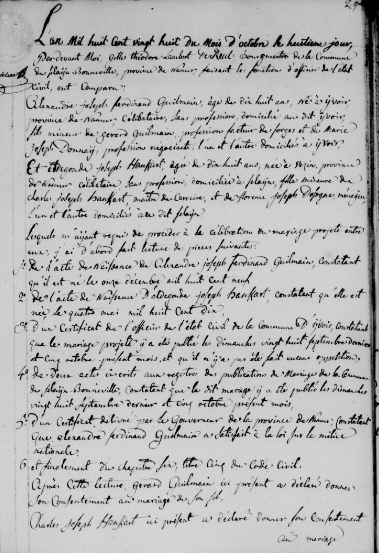 L'an Mil huit Cent vingt huit du Mois d'octobre le huitieme jour,
Pardevant Moi, Gille théodore Lambert Bourgmestre de la Commune
de Sclaijn Bonneville, province de Namur faisant les fonction d'officier de l'état
civil, ont Comparu:
Alexandre Joseph Ferdinand Guilmain, âgé de dix huit ans, né à yvoir
province de Namur Célibataire, Sans profession, domicilié au dit yvoir,
fils mineur de gerard Guilmain, profession facteur de forges et de Marie
Joseph profession negociante, l'un et l'autre domiciliés à yvoir.
Et aldegonde Joseph Hanffart, âgée de dix huit ans, née à province
de Namur célibataire, Sans profession, domiciliée à Sclaijn, fille mineure de
Charles Joseph Hanffart, maître de Carriere, et de florence Joseph ménagère,
L'un et l'autre domiciliés au dit Sclaijn
Lesquels m'aijant requis de procéder à la célébration du mariage projeté entre
eux, j'ai d'abord fait lecture des pieces Suivante:
1° de l'acte de Naissance du Alexandre Joseph ferdinand Guilmain, Constatant
qu'il est né le onze décembre mil huit cent neuf
2° de l'acte de Naissance d'aldegonde Joseph Hanffart, constatant qu'elle est
née le quatre mai mil huit Cent Dix,
3° d'un Certificat de l'officier de l'état civil de la Commune D'Yvoir, constatant
que le mariage projeté y a été publié les dimanches vingt huit septembre dernier
et Cinq octobre présent mois, et qu'il n'y a pas été fait aucune opposition.
4° de Deux actes inscrits aux registres des publication de Mariage de la Commune
de Sclaijn Bonneville, Constatant que le dit mariage y a été publié les dimanches
vingt huit Septembre dernier et Cinq octobre présent mois,
5° d'un Certificat délivré par le Gouverneur de la province de Namur, Constatant
que alexandre ferdinand Guilmain a Satisfait à la loi sur la milice
nationale.
6 et finalement du chapitre Six, titre Cinq du Code Civil.
Après Cette lecture, Gerard Guilmain ici présent a déclaré donner
Son Consentement au mariage de Son fils.
Charles Joseph Hanffart ici présent a déclaré donner Son Consentement
au mariage